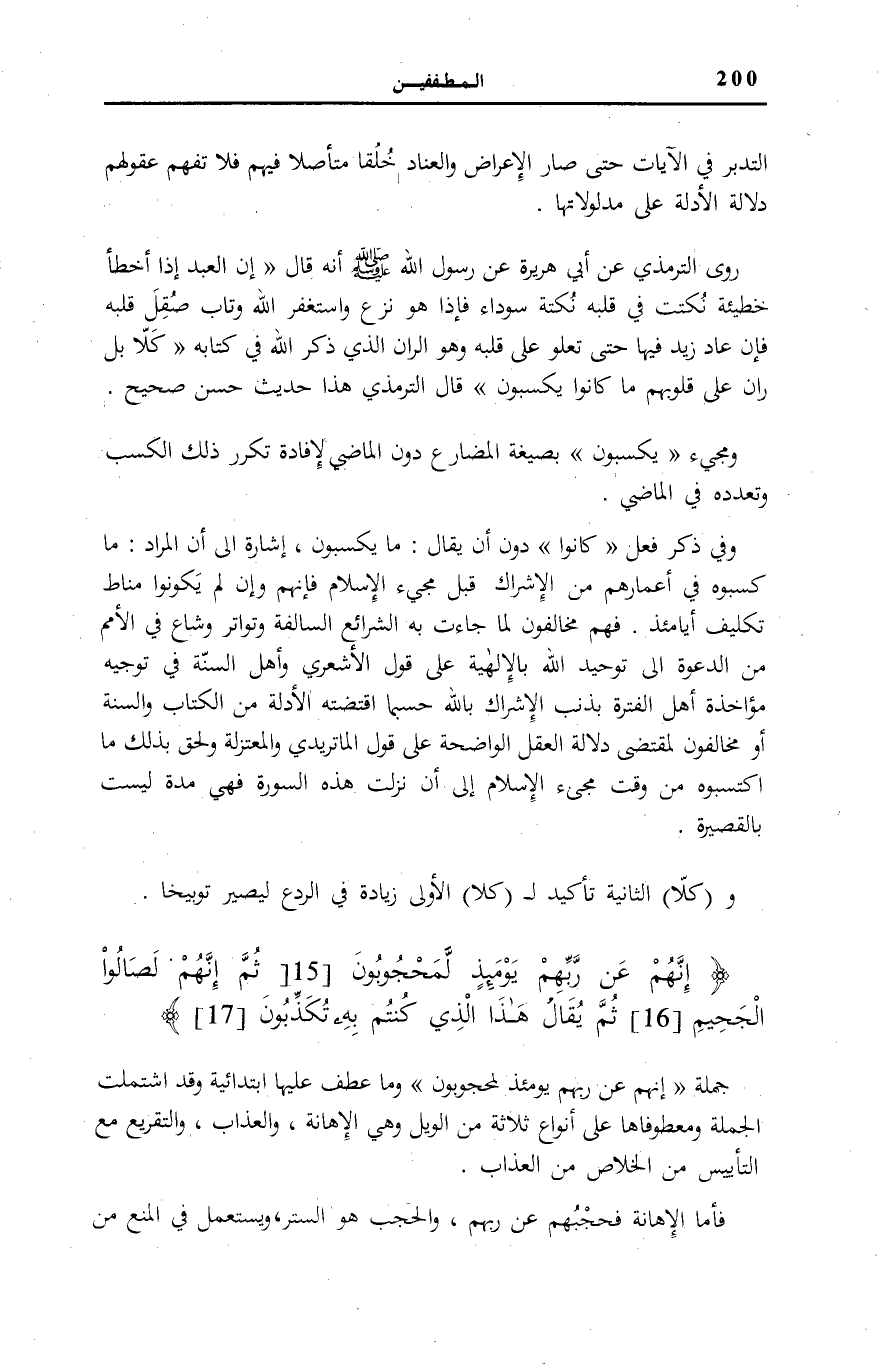 200
المطففين
التدبر في الآيات حتى صار الإعراض والعناد خُلُقا متأصلا فيهم فلا تفهم عقولهم
دلالة الأدلة على مدلولاتها .
روى الترمذي عن أبي هريرة عن رسول الله ﷺ أنه قال « إن العبد إذا أخطأ
خطيئة نُكتت في قلبه نُكتة سوداء فإذا هو نزع واستغفر الله وتاب صُقِلَ قلبه
فإن عاد زيد فيها حتى تعلو على قلبه وهو الران الذي ذكر الله في كتابه « كَلّا بل
ران على قلوبهم ما كانوا يكسبون » قال الترمذي هذا حديث حسن صحيح .
ومجيء « يكسبون » بصيغة المضارع دون الماضي لإفادة تكرر ذلك الكسب
وتعدده في الماضي .
وفي ذكر فعل « كانوا » دون أن يقال : ما يكسبون ، إشارة الى أن المراد : ما
كسبوه في أعمارهم من الإشراك قبل مجيء الإسلام فإنهم وإن لم يَكونوا مناط
تكليف أيامئذ . فهم مخالفون لما جاءت به الشرائع السالفة وتواتر وشاع في الأمم
من الدعوة الى توحيد الله بالإلهٰية على قول الأشعري وأهل السنّة في توجيه
مؤاخذة أهل الفترة بذنب الإشراك بالله حسبما اقتضته الأدلة من الكتاب والسنة
أو مخالفون لمقتضى دلالة العقل الواضحة على قول الماتريدي والمعتزلة ولحق بذلك ما
اكتسبوه من وقت مجيء الإسلام إلى أن نزلت هذه السورة فهي مدة ليست
بالقصيرة .
و (كلّا) الثانية تأكيد لـ (كلا) الأولى زيادة في الردع ليصير توبيخا .
﴿ إِنَّهُمْ عَن رَّبِّهِمْ يَوْمَئِذٍ لَّمَحْجُوبُونَ [15] ثُمَّ إِنَّهُمْ لَصَالُواْ
الْجَحِيمِ [16] ثُمَّ يُقَالُ هَـٰذَا الَّذِي كُنتُم بِهِۦ تُكَذِّبُونَ [17] ﴾
جملة « إنهم عن ربهم يومئذ لمحجوبون » وما عطف عليها ابتدائية وقد اشتملت
الجملة ومعطوفاها على أنواع ثلاثة من الويل وهي الإهانة ، والعذاب ، والتقريع مع
التأييس من الخلاص من العذاب .
فأما الإهانة فحجْبُهم عن ربهم ، والحَجب هو الستر،ويستعمل في المنع من